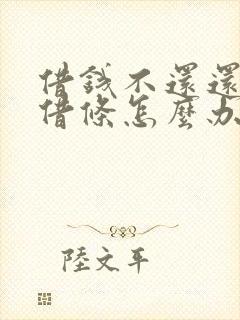 借錢不還還
借條怎麼办
陸文平